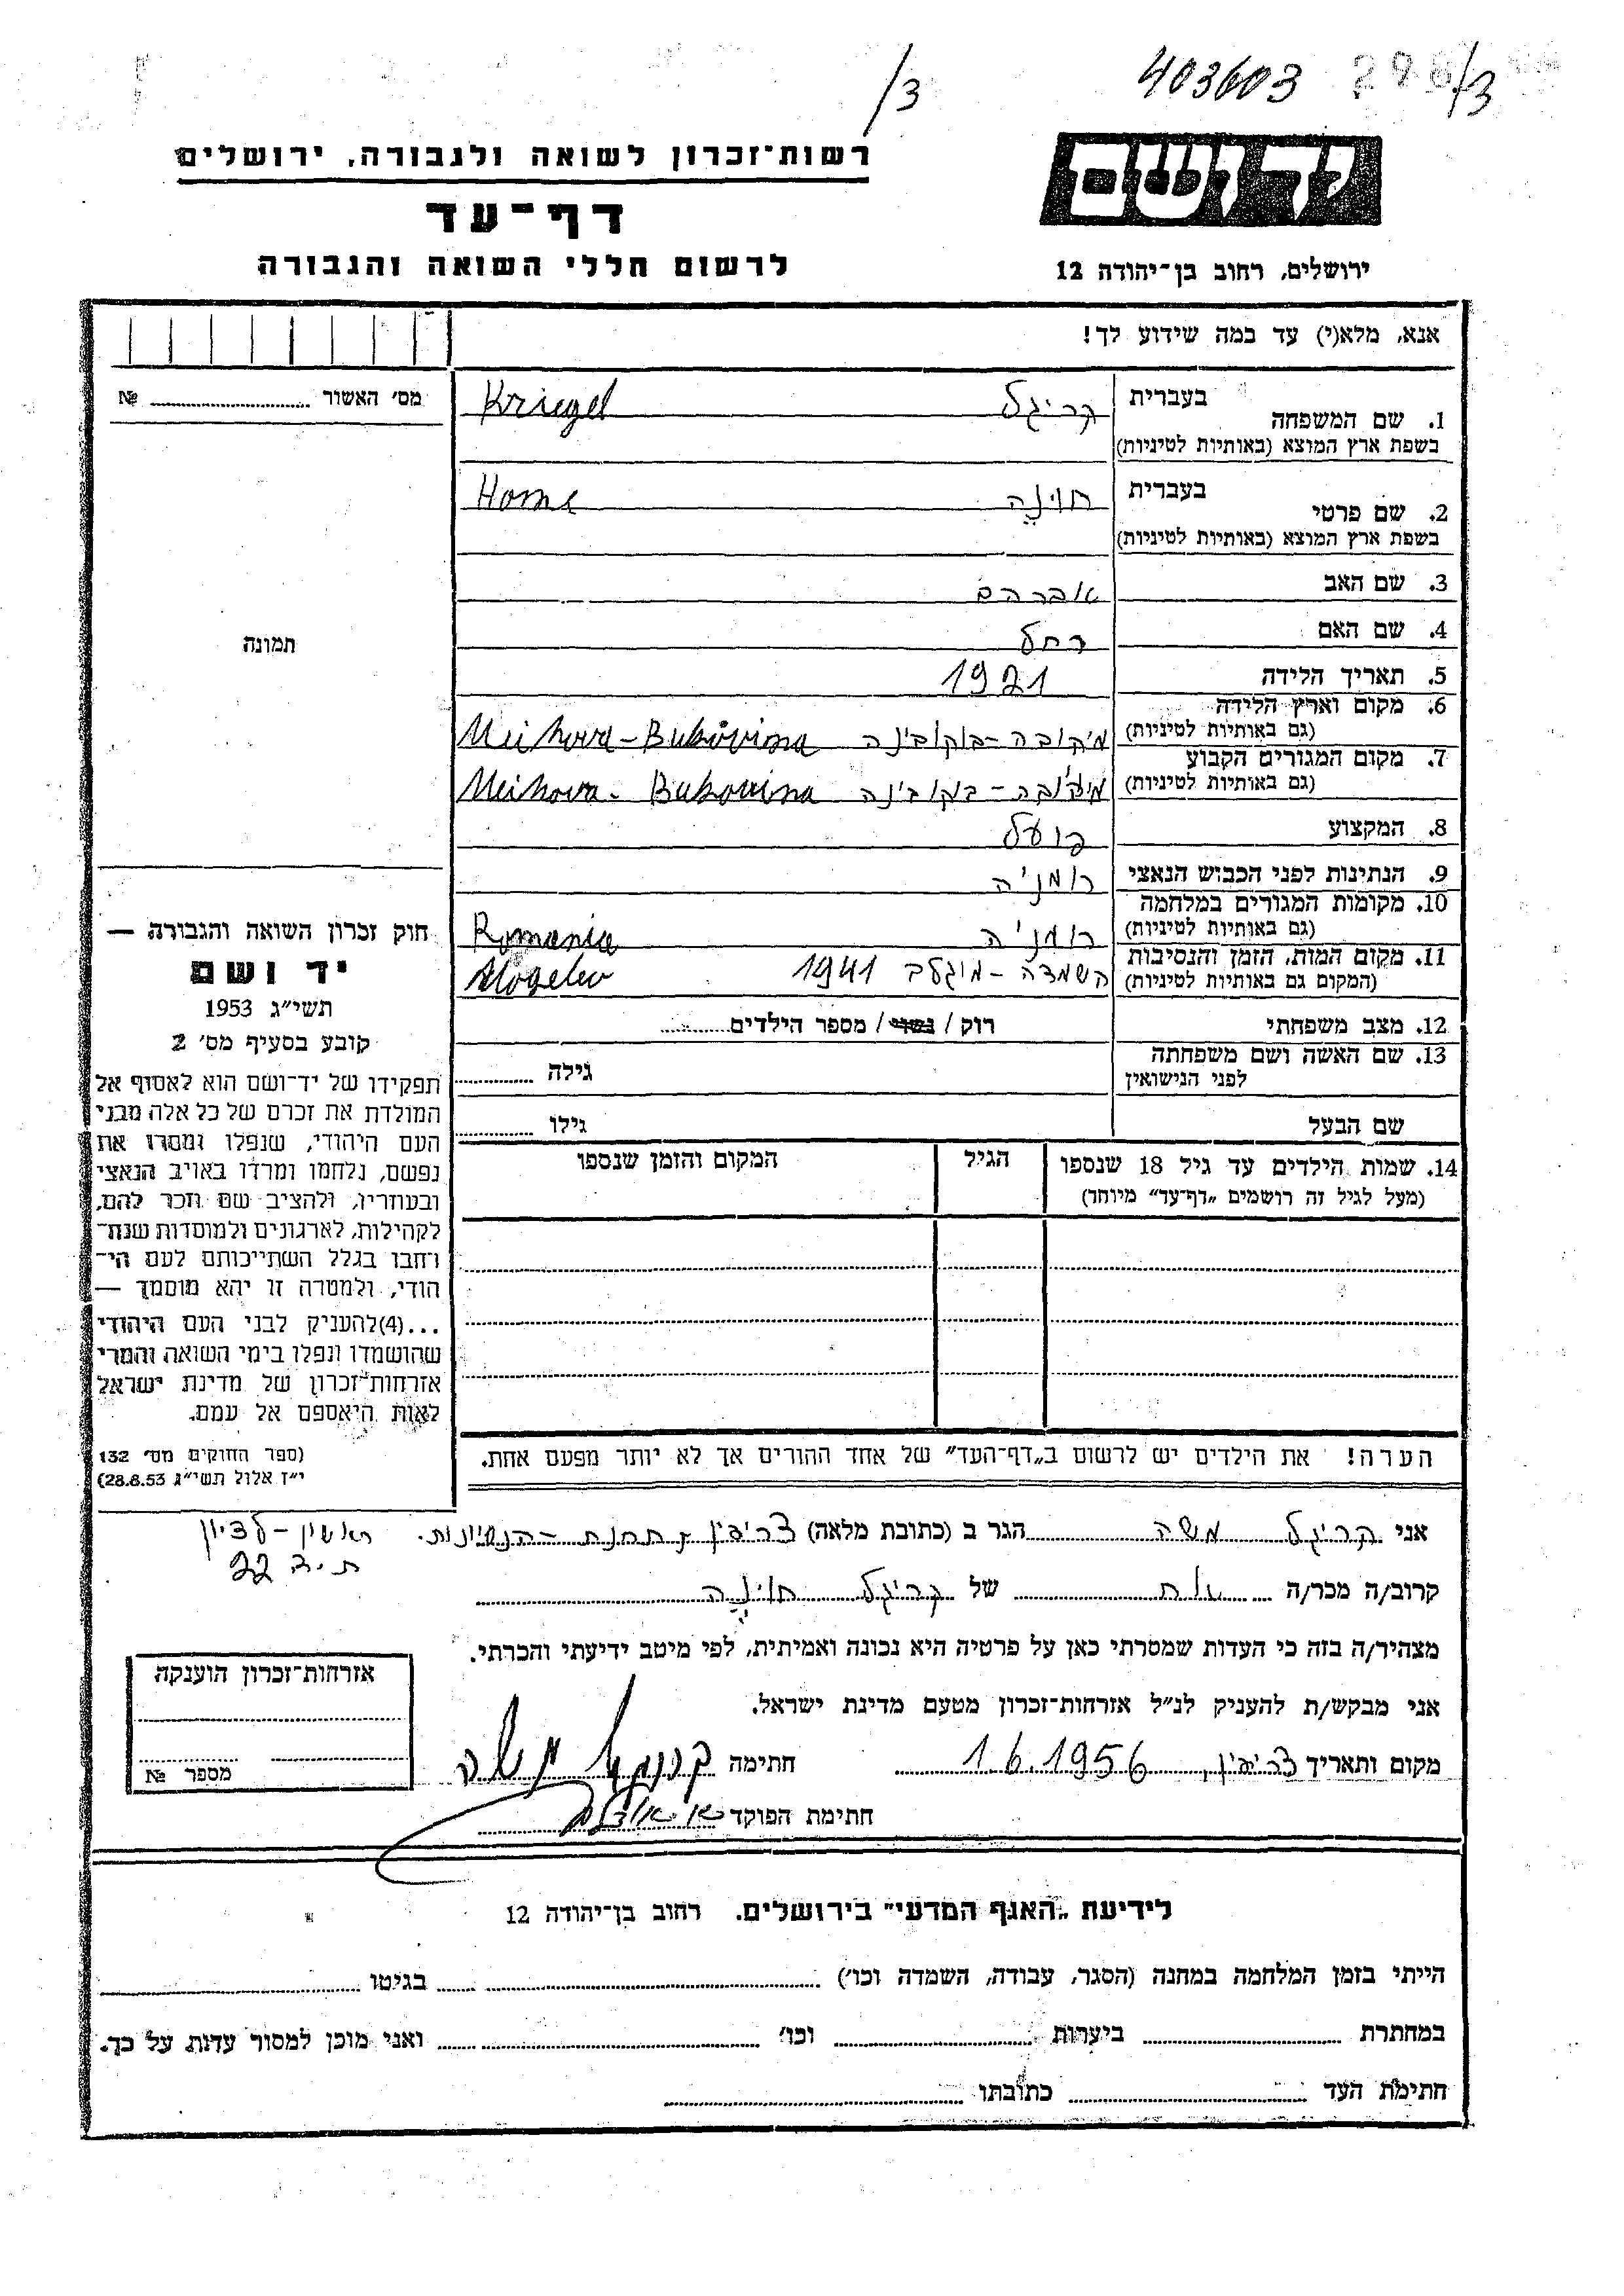 /3
403603
/3
יד ושם
ירושלים, רחוב בן-יהודה 12
רשות-זכרון לשואה ולגבורה, ירושלים
דף-עד
לרשום חללי השואה והגבורה
אנא, מלא(י) עד במה שידוע לך!
1. שם המשפחה בעברית קריגל Kriegel
בשפת ארץ המוצא (באותיות לטיניות)
2. שם פרטי בעברית חוינה
בשפת ארץ המוצא (באותיות לטיניות)
3. שם האב אברהם
4. שם האם רחל
5. תאריך הלידה 1921
6. מקום וארץ הלידה
(גם באותיות לטיניות) מיקובה-בוקובינה Meihova-Bukovina
7. מקום המגורים הקבוע
(גם באותיות לטיניות) מיקובה-בוקובינה Meihova-Bukovina
8. המקצוע פועל
9. הנתינות לפני הכבוש הנאצי רומניה
10. מקומות המגורים במלחמה
(גם באותיות לטיניות) רומניה Romania
11. מקום המות, הזמן והנסיבות
(המקום גם באותיות לטיניות) השמדה-מוגלב 1941 Mogelev
12. מצב משפחתי רוק / נשוי / מספר הילדים
13. שם האשה ושם משפחתה
לפני הנישואין גילה
שם הבעל גילו
14. שמות הילדים עד גיל 18 שנספו הגיל המקום והזמן שנספו
(מעל לגיל זה רושמים „דף-עד" מיוחד)
הערה! את הילדים יש לרשום ב„דף-העד" של אחד ההורים אך לא יותר מפעם אחת.
מס' האשור №
תמונה
חוק זכרון השואה והגבורה —
יד ושם
תשי"ג 1953
קובע בסעיף מס' 2
תפקידו של יד-ושם הוא לאסוף אל
המולדת את זכרם של כל אלה מבני
העם היהודי, שנפלו ומסרו את
נפשם, נלחמו ומרדו באויב הנאצי
ובעוזריו, ולהציב שם וזכר להם,
לקהילות, לארגונים ולמוסדות שנח-
רחבו בגלל השתייכותם לעם הי-
הודי, ולמטרה זו יהא מוסמך —
...(4)להעניק לבני העם היהודי
שהושמדו ונפלו בימי השואה והמרי
אזרחות-זכרון של מדינת ישראל
לאות היאספם אל עמם.
(ספר החוקים מס' 132
י"ז אלול תשי"ג 28.8.53)
אני קריגל משה הגר ב (כתובת מלאה) צריפין תחנת-הנסיונות. ראשון-לציון
ת.ד 22
קרוב/ה מכר/ה אח של קריגל חוינה
מצהיר/ה בזה כי העדות שמסרתי כאן על פרטיה היא נכונה ואמיתית, לפי מיטב ידיעתי והכרתי.
אני מבקש/ת להעניק לנ"ל אזרחות-זכרון מטעם מדינת ישראל.
מקום ותאריך צריפין, 1.6.1956 חתימה קריגל משה
חתימת הפוקד
אזרחות-זכרון הוענקה
מספר №
לידיעת „האגף המדעי" בירושלים, רחוב בן-יהודה 12
הייתי בזמן המלחמה במחנה (הסגר, עבודה, השמדה וכו') בגיטו
במחתרת ביערות וכו' ואני מוכן למסור עדות על כך.
חתימת העד כתובתו